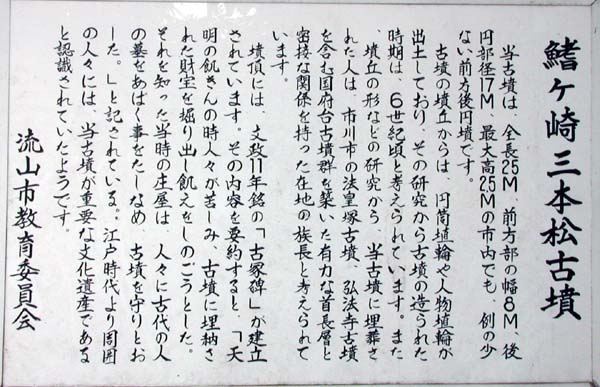 鰭ヶ崎三本松古墳
当古墳は、全長25M、前方部の幅8M、後
円部径17M、最大高2.5Mの市内でも、例の少
ない前方後円墳です。
古墳の墳丘からは、円筒埴輪や人物埴輪が
出土しており、その研究から古墳の造られた
時期は、6世紀頃と考えられています。また
、墳丘の形などの研究から、当古墳に埋葬さ
れた人は、市川市の法皇塚古墳、弘法寺古墳
を含む国府台古墳群を築いた有力な首長層と
密接な関係を持った在地の族長と考えられて
います。
墳頂には、文政11年銘の「古冢碑」が建立
されています。その内容を要約すると、「天
明の飢きんの時人々が苦しみ、古墳に埋納さ
れた財宝を掘り出し飢えをしのごうとした。
それを知った当時の庄屋は、人々に古代の人
の墓をあばく事をたしなめ、古墳を守りとお
した。」と記されている。江戸時代より周囲
の人々には、当古墳が重要な文化遺産である
と認識されていたようです。
流山市教育委員会